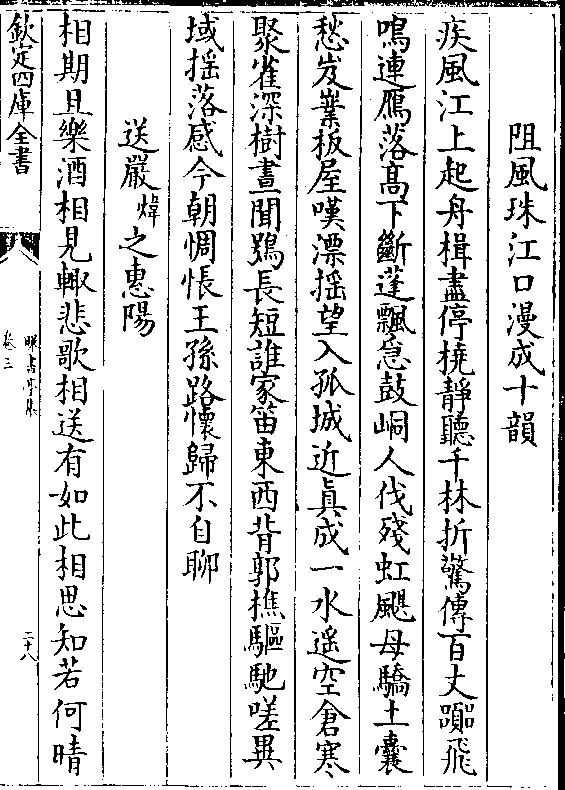 阻風珠江口漫成十韻
疾風江上起舟楫盡停橈靜聽千林折驚傳百丈飛
鳴連鴈落髙下斷蓬飄急鼓峒人伐殘虹颶母驕土囊
愁岌嶪板屋嘆漂揺望入孤城近真成一水遥空倉寒
聚雀深樹晝聞鴞長短誰家笛東西背郭樵驅馳嗟異
域揺落感今朝惆悵王孫路懷歸不自聊
送嚴煒之惠陽
相期且樂酒相見輙悲歌相送有如此相思知若何晴
欽定四庫全書
曝書亭集
卷三
二十八